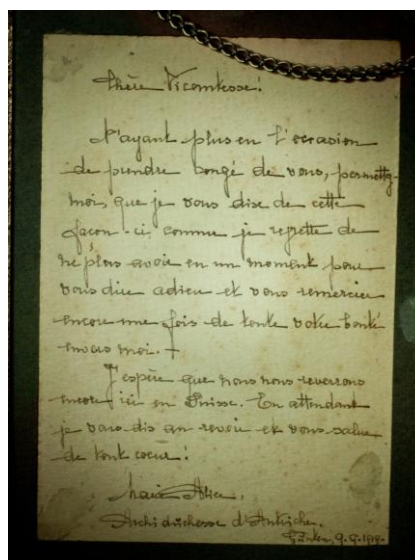 Chère Vicomtesse!
N'ayant plus eu l'occasion
de prendre congé de vous, permettez-
moi, que je vous dise de cette
façon-ci, comme je regrette de
ne plus avoir eu un moment pour
vous dire adieu et vous remercier
encore une fois de toute votre bonté
envers moi. +
J'espère que nous nous reverrons
encore ici en Suisse. En attendant
je vous dis au revoir et vous salue
de tout coeur!
Marie Alice,
Archiduchesse d'Autriche.
9.9.1919.